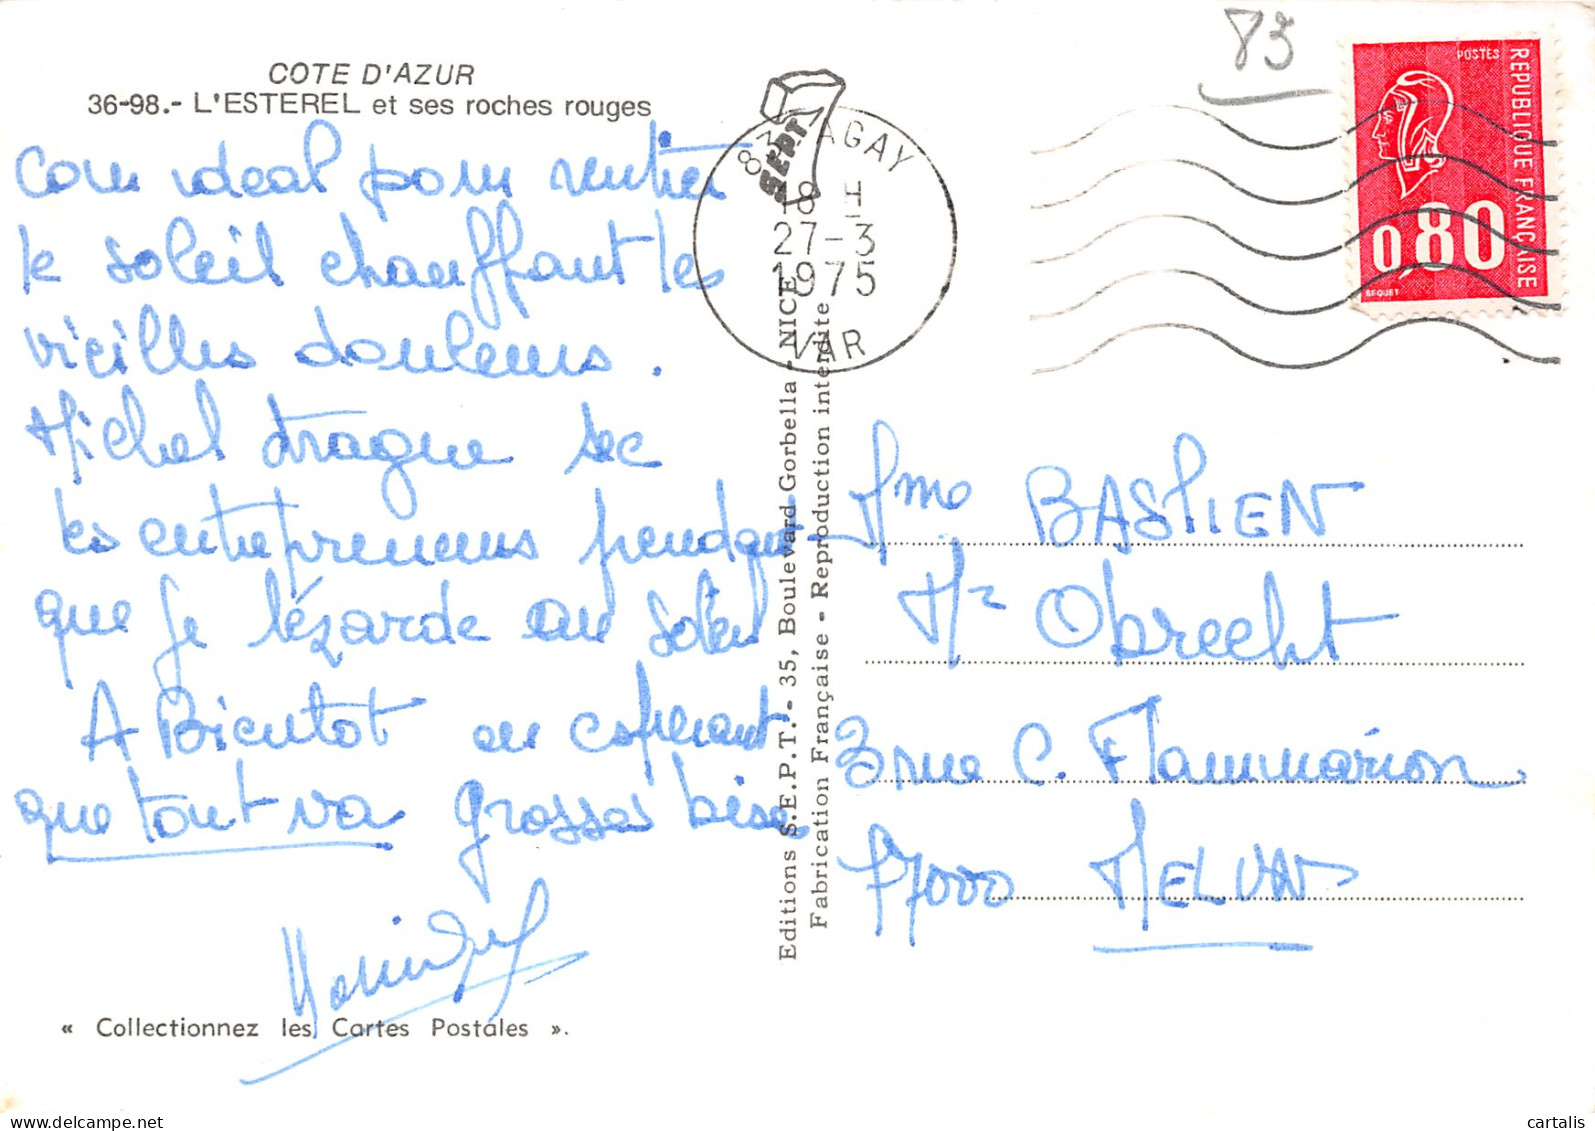 COTE D'AZUR
36-98.- L'ESTEREL et ses roches rouges
Coin idéal pour rentier
le soleil chauffant les
vieilles douleurs.
Michel drague sec
les entrepreneurs pendant
que je lézarde au soleil
A Bientot en espérant
que tout va grosses bises
« Collectionnez les Cartes Postales ».
Editions S.E.P.T. - 35, Boulevard Gorbella - NICE
Fabrication Française - Reproduction interdite
SEPT
83 AGAY
18 H
27-3
1975
VAR
83
POSTES
REPUBLIQUE FRANÇAISE
0,80
BEQUET
Mme BASTIEN
Mr Obrecht
3 rue C. Flammarion
77000 MELUN
cartalis
delcampe.net